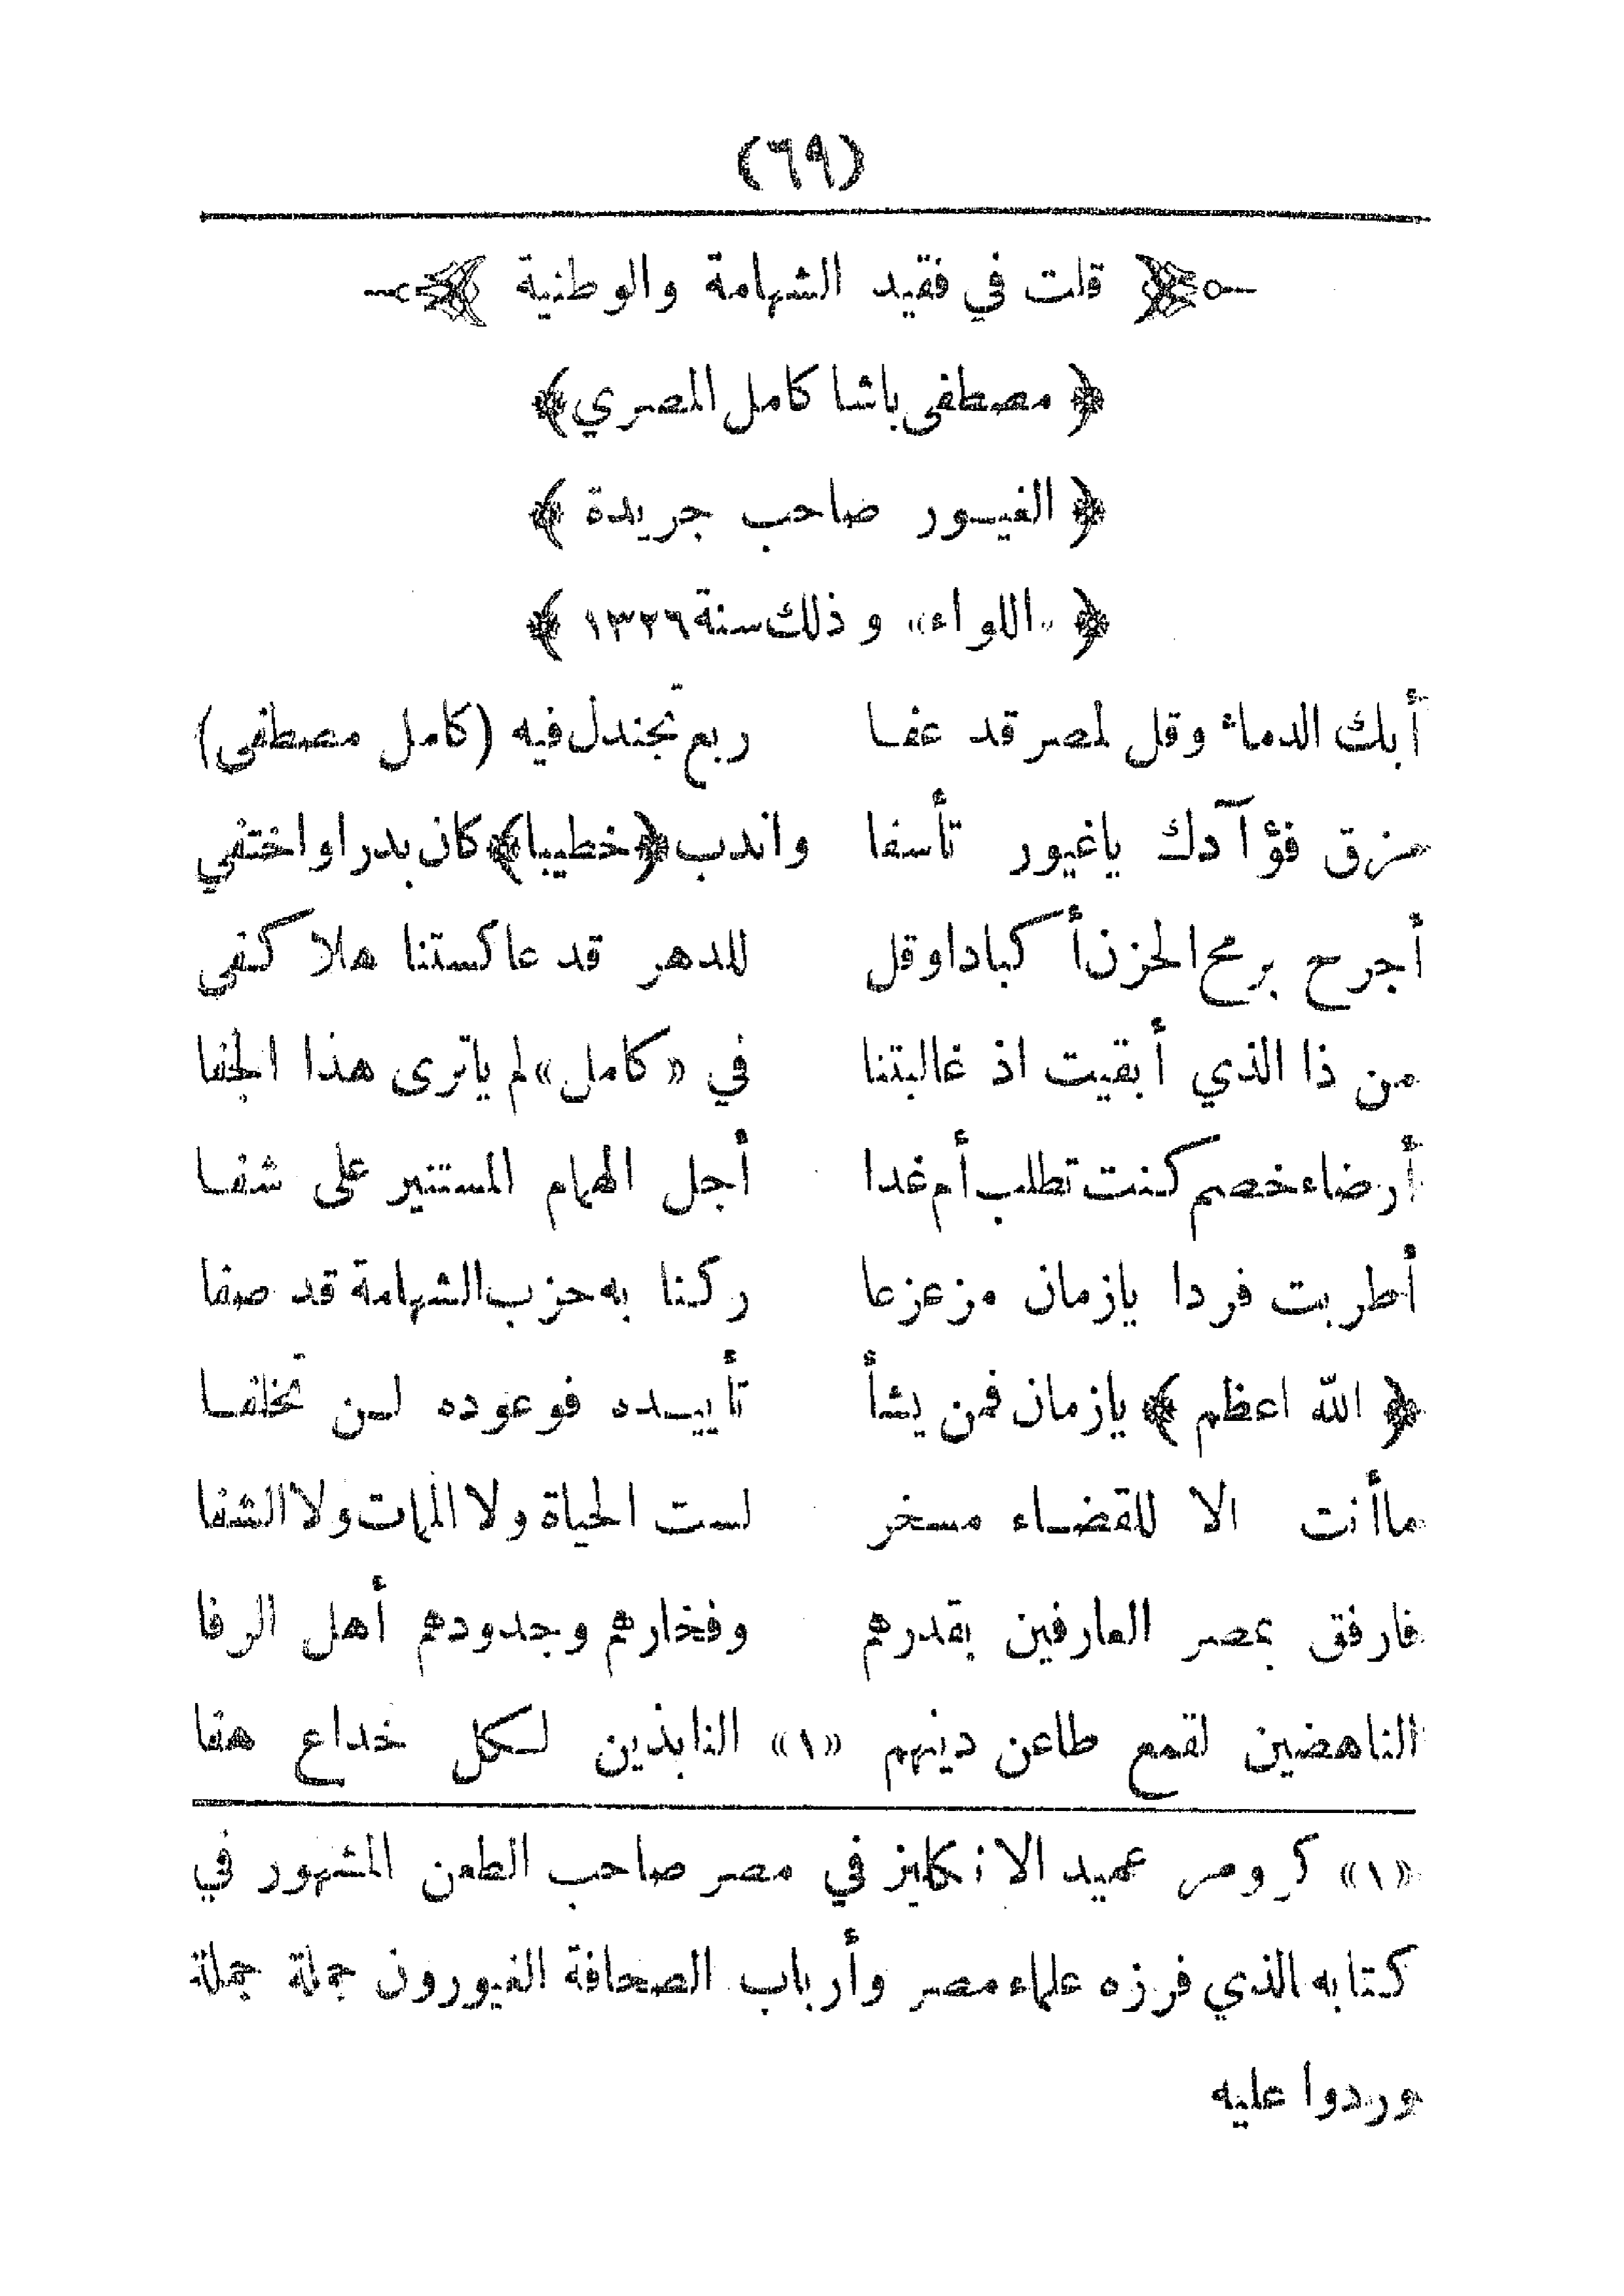 (٦٩)
قلت في فقيد الشهامة والوطنية
﴿ مصطفى باشا كامل المصري ﴾
﴿ الغيور صاحب جريدة ﴾
﴿ «اللواء» وذلك سنة ١٣٢٦ ﴾
أبك الدماء وقل لمصر قد عفا ربع تجندل فيه (كامل مصطفى)
مزق فؤآدك ياغيور تأسفا واندب ﴿خطيبا﴾ كان بدرا واختفي
أجرح برمح الحزن أكبادا وقل للدهر قد عاكستنا هلا كفى
من ذا الذي أبقيت اذ غالبتنا في «كامل» لم ياترى هذا الجفا
أرضاء خصم كنت تطلب أم غدا أجل الهمام المستنير على شفا
أطربت فردا يازمان مزعزعا ركنا به حزب الشهامة قد صفا
﴿ الله اعظم ﴾ يازمان فمن يشأ تأييده فوعوده لن تخلفا
ماأنت الا للقضاء مسخر لست الحياة ولا الممات ولا الشفا
فارفق بمصر العارفين بقدرهم وفخارهم وجدودهم أهل الرفا
الناهضين لقمع طاعن دينهم «١» النابذين لكل خداع هفا
«١» كرومر عميد الانكليز في مصر صاحب الطعن المشهور في
كتابه الذي فرزه علماء مصر وأرباب الصحافة الغيورون جملة جملة
وردوا عليه